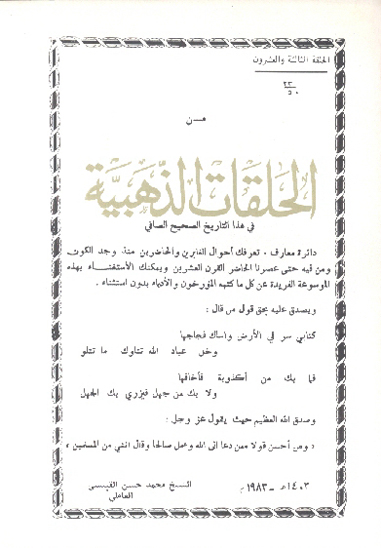 الحلقة الثالثة والعشرون
٢٣
٥٠
من
الحلقات الذهبية
في هذا التاريخ الصحيح الصافي
دائرة معارف ، تعرفك أحوال الغابرين والحاضرين منذ وجد الكون
ومن فيه حتى عصرنا الحاضر القرن العشرين ويمكنك الأستغناء بهذه
الموسوعة الفريدة عن كل ما كتبه المؤرخون والأدباء بدون استثناء .
ويصدق عليه بحق قول من قال :
كتابي سر في الأرض واسلك فجاجها
وخل عباد الله تتلوك ما تتلو
فما بك من أكذوبة فأخافها
ولا بك من جهل فيزري بك الجهل
وصدق الله العظيم حيث يقول عز وجل :
« ومن أحسن قولا ممن دعا الى الله وعمل صالحا وقال انني من المسلمين »
١٤٠٣هـ - ١٩٨٣م
الشيخ محمد حسن القبيسي
العاملي